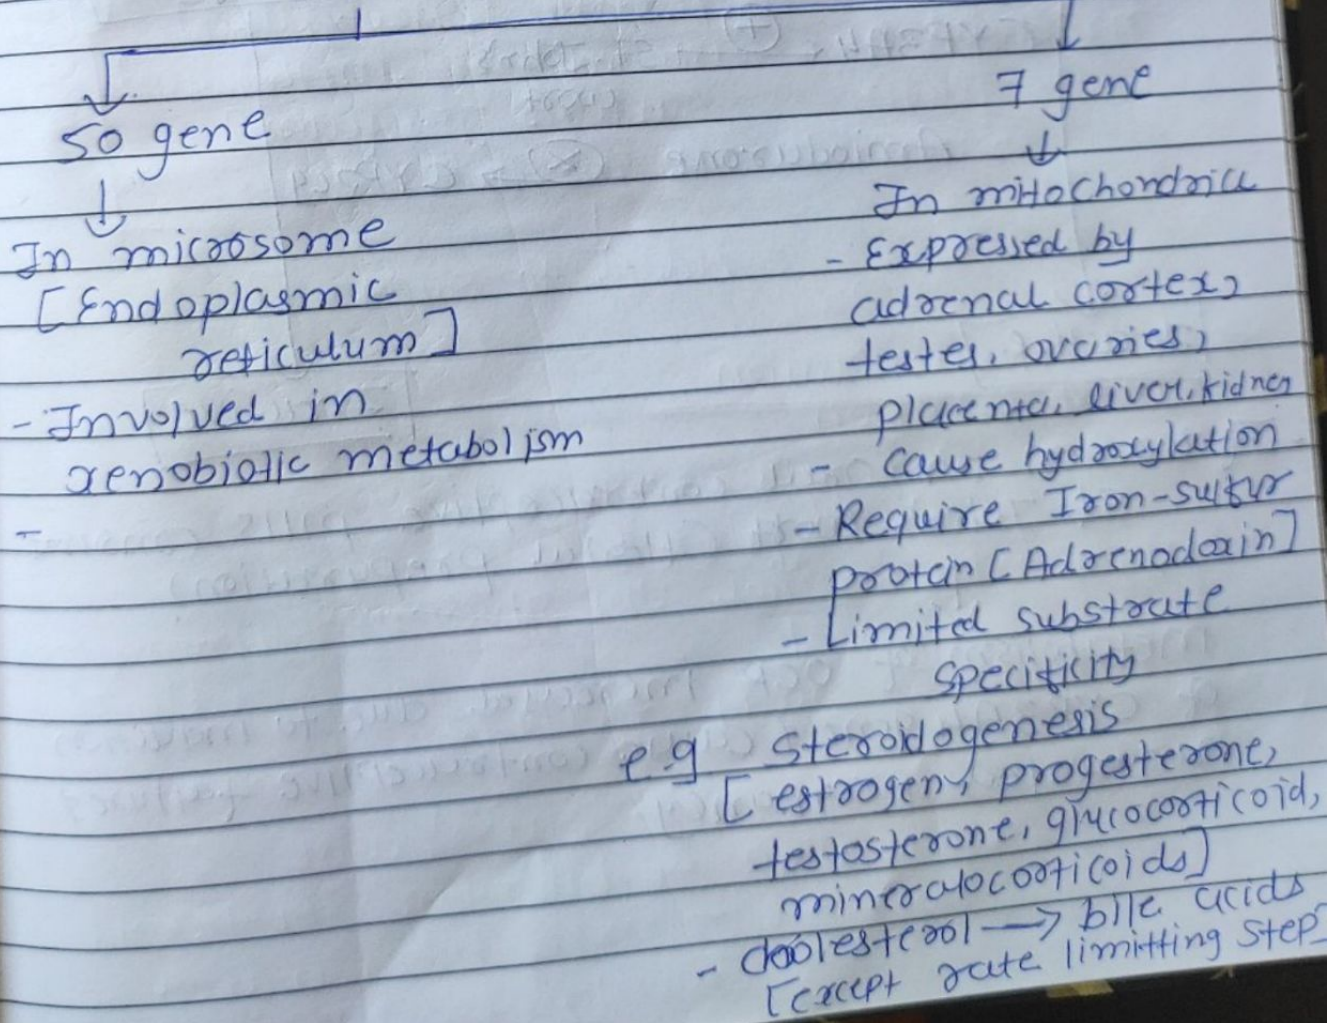 50 gene
In microsome
[Endoplasmic
reticulum]
- Involved in
xenobiotic metabolism
-
7 gene
In mitochondria
- Expressed by
adrenal cortex,
testes, ovaries,
placenta, liver, kidney
- cause hydroxylation
- Require Iron-sulfur
protein [Adrenodoxin]
- Limited substrate
specificity
e.g steroidogenesis
[estrogen, progesterone,
testosterone, glucocorticoid,
mineralocorticoids]
- cholesterol → bile acids
[except rate limitting step